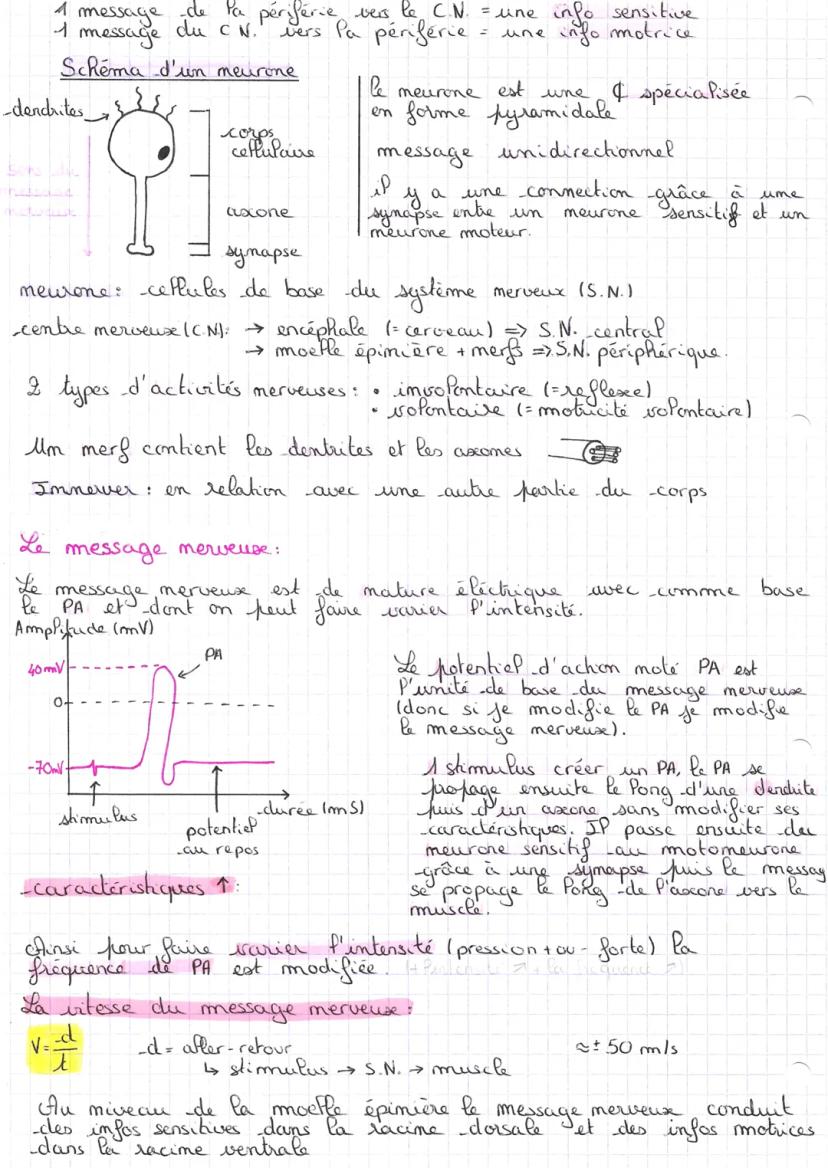 1 message de la périférie vers le C.N. = une info sensitive
1 message du C N. vers la périférie = une info motrice
Schéma d'un neurone
dendrites
corps
cellulaire
axone
synapse
sens du
message
nerveux
le neurone est une ¢ spécialisée
en forme pyramidale
message unidirectionnel
il y a une connection grâce à une
synapse entre un neurone sensitif et un
neurone moteur.
neurone: cellules de base du système nerveux (S.N.)
centre nerveux (C.N): → encéphale (= cerveau) => S.N. central
→ moelle épinière + nerfs => S.N. périphérique.
2 types d'activités nerveuses : • involontaire (= reflexe)
• volontaire (= motricité volontaire)
Un nerf contient les dentrites et les axones
Innerver : en relation avec une autre partie du corps
Le message nerveux :
Le message nerveux est de nature éléctrique avec comme base
le PA et dont on peut faire varier l'intensité.
Amplitude (mV)
40mV
0
-70mV
PA
stimulus
potentiel
au repos
durée (mS)
Le potentiel d'achion noté PA est
l'unité de base du message nerveux
(donc si je modifie le PA je modifie
le message nerveux).
1 stimulus créer un PA, le PA se
propage ensuite le long d'une dendrite
puis d'un axone sans modifier ses
caractéristiques. Il passe ensuite du
neurone sensitif au motoneurone
grâce à une synapse puis le messag
se propage le long de l'axone vers le
muscle.
caractéristiques ↑ :
Ainsi pour faire varier l'intensité (pression + ou - forte) la
fréquence de PA est modifiée. (+ l'intensité ↗ + la fréquence ↗)
La vitesse du message nerveux :
V = d/t
d = aller-retour
↳ stimulus → S.N. → muscle
≈ ± 50 m/s
Au niveau de la moelle épinière le message nerveux conduit
des infos sensitives dans la racine dorsale et des infos motrices
dans la racine ventrale